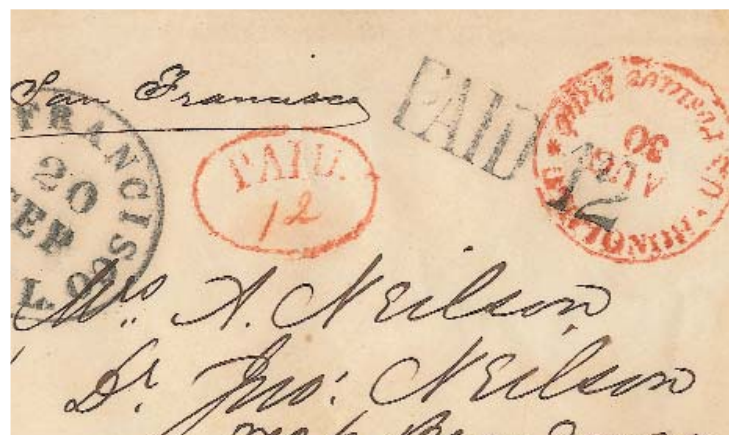 San Francisco
FRANCISCO
20
SEP
CAL.
PAID
12
PAID
12
HONOLULU · U.S. Postage Paid.
AUG
30
Mrs. A. Neilson
Dr. Jno: Neilson